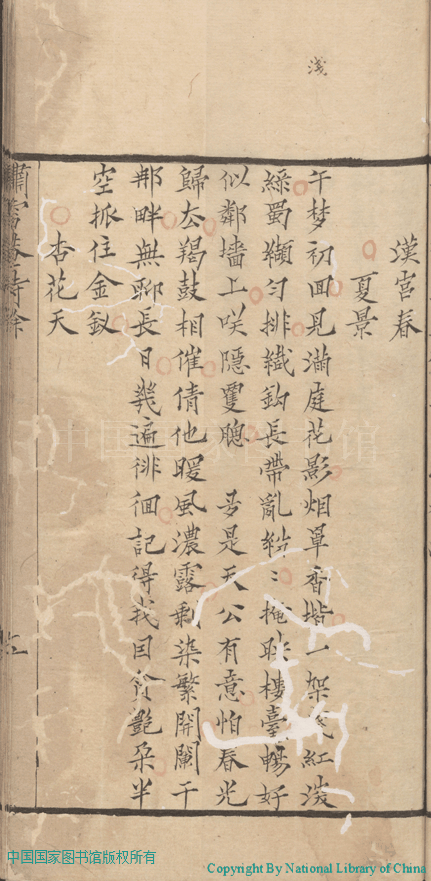 淺
漢宮春
夏景
午梦初回見滿庭花影烟罩香堦一架紅淡
綵蜀纈匀排纖鈎長帶亂紛〻掩映樓臺暢好
似鄰墻上咲隱䨥腮 是天公有意怕春光
歸去羯鼓相催倩他暖風濃露剩染繁開闌干
那畔無聊長日幾遍徘徊記得我回貪艷朵半
空抓住金釵
杏花天
中国国家图书馆
中国国家图书馆版权所有
Copyright By National Library of China